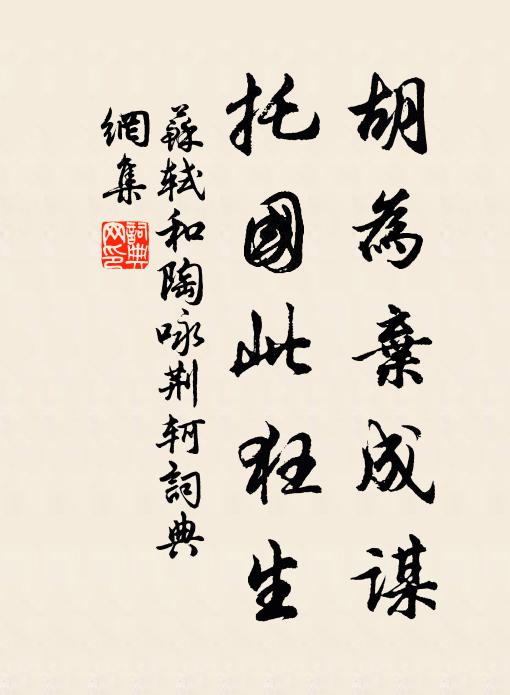 胡為棄成謀
托國此狂生
蘇軾和陶咏荆軻詞典
網集
詞典
网印